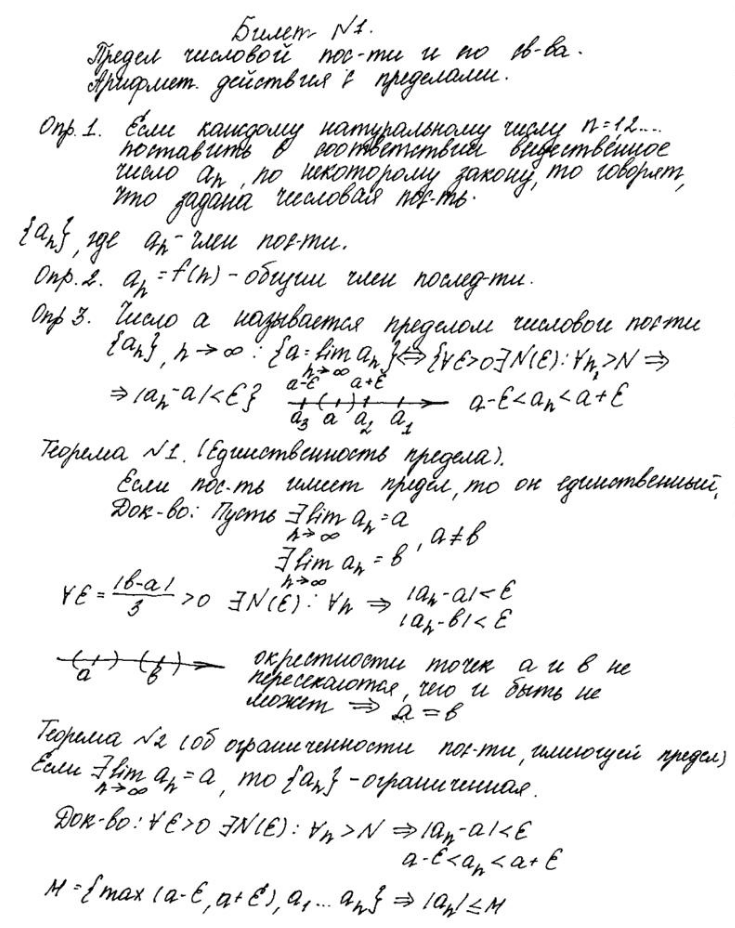 Билет №1.
Предел числовой пос-ти и его св-ва.
Арифмет. действия с пределами.
Опр. 1. Если каждому натуральному числу n=1,2....
поставить в соответствии вещественное
число aₙ, по некоторому закону, то говорят,
что задана числовая пос-ть.
{aₙ}, где aₙ - член пос-ти.
Опр. 2. aₙ = f(n) - общий член послед-ти.
Опр 3. Число a называется пределом числовой пос-ти
{aₙ}, n→∞ : {a = lim aₙ} ⇔ {∀ε>0 ∃N(ε): ∀n, >N ⇒
n→∞
⇒ |aₙ-a|<ε} a-ε a+ε a-ε<aₙ<a+ε
a₃ a a₂ a₁
Теорема №1. (Единственность предела).
Если пос-ть имеет предел, то он единственный.
Док-во: Пусть ∃ lim aₙ = a
n→∞ , a≠b
∃ lim aₙ = b
n→∞
∀ε = |b-a|/3 >0 ∃N(ε): ∀n ⇒ |aₙ-a|<ε
|aₙ-b|<ε
a b окрестности точек a и b не
пересекаются, чего и быть не
может ⇒ a = b
Теорема №2 (об ограниченности пос-ти, имеющей предел)
Если ∃ lim aₙ = a, то {aₙ} - ограниченная.
n→∞
Док-во: ∀ε>0 ∃N(ε): ∀n>N ⇒ |aₙ-a|<ε
a-ε<aₙ<a+ε
M = {max (a-ε, a+ε), a₁... aₙ} ⇒ |aₙ| ≤ M